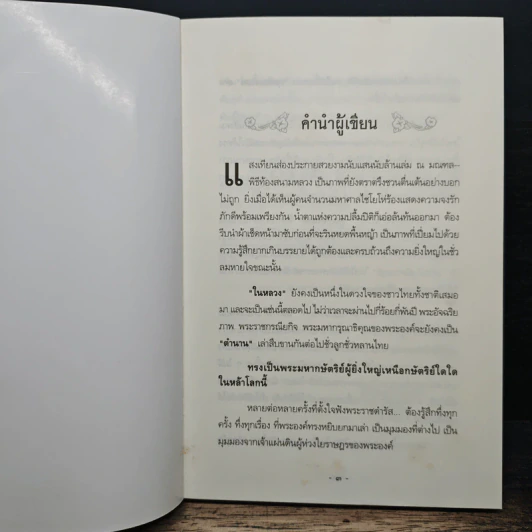 คำนำผู้เขียน
แสงเทียนส่องประกายสวยงามนับแสนนับล้านเล่ม ณ มณฑล-
พิธีท้องสนามหลวง เป็นภาพที่ยังตราตรึงชวนตื่นเต้นอย่างบอก
ไม่ถูก ยิ่งเมื่อได้เห็นผู้คนจำนวนมหาศาลไชโยโห่ร้องแสดงความจงรัก
ภักดีพร้อมเพรียงกัน น้ำตาแห่งความปลื้มปีติก็เอ่อล้นทันออกมา ต้อง
รีบนำผ้าเช็ดหน้ามาซับก่อนที่จะรินหยดพื้นหญ้า เป็นภาพที่เปี่ยมไปด้วย
ความรู้สึกยากเกินบรรยายได้ถูกต้องและครบถ้วนถึงความยิ่งใหญ่ในชั่ว
ลมหายใจขณะนั้น
"ในหลวง" ยังคงเป็นหนึ่งในดวงใจของชาวไทยทั้งชาติเสมอ
มา และจะเป็นเช่นนี้ตลอดไป ไม่ว่าเวลาจะผ่านไปกี่ร้อยกี่พันปี พระอัจฉริย
ภาพ พระราชกรณียกิจ พระมหากรุณาธิคุณของพระองค์จะยังคงเป็น
"ตำนาน" เล่าสืบขานกันต่อไปชั่วลูกชั่วหลานไทย
ทรงเป็นพระมหากษัตริย์ผู้ยิ่งใหญ่เหนือกษัตริย์ใดใด
ในหล้าโลกนี้
หลายต่อหลายครั้งที่ตั้งใจฟังพระราชดำรัส... ต้องรู้สึกทึ่งทุก
ครั้ง ทึ่งทุกเรื่อง ที่พระองค์ทรงหยิบยกมาเล่า เป็นมุมมองที่ต่างไป เป็น
มุมมองจากเจ้าแผ่นดินผู้ห่วงใยราษฎรของพระองค์
- ๓ -